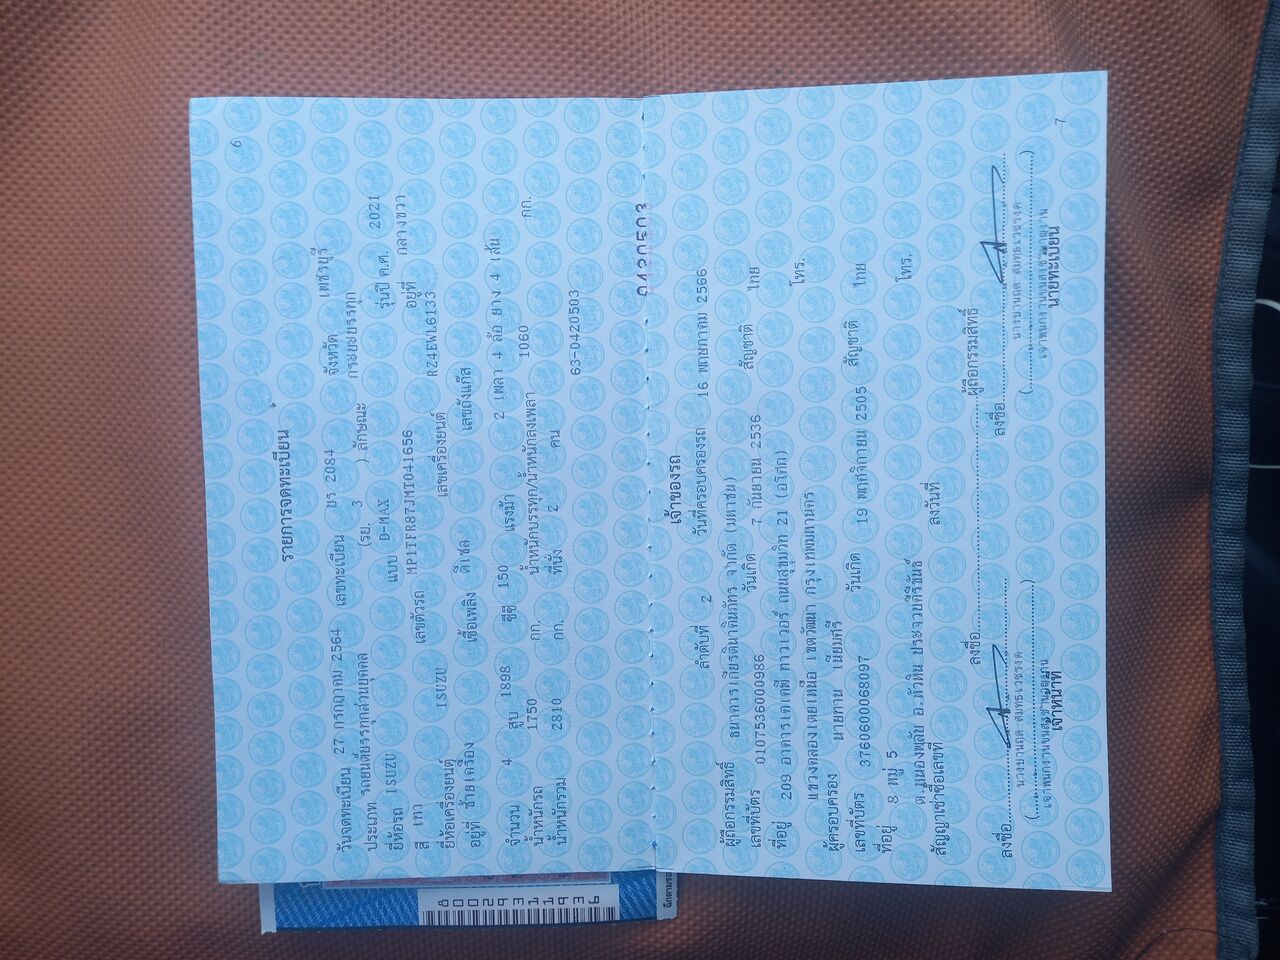 6
รายการจดทะเบียน
วันจดทะเบียน 27 กรกฎาคม 2564 เลขทะเบียน บร 2084 จังหวัด เพชรบุรี
ประเภท รถยนต์บรรทุกส่วนบุคคล (รย. 3 ) ลักษณะ กระบะบรรทุก
ยี่ห้อรถ ISUZU แบบ D-MAX รุ่นปี ค.ศ. 2021
สี เทา เลขตัวรถ MP1TFR87JMT041656 อยู่ที่ กลางขวา
ยี่ห้อเครื่องยนต์ ISUZU เลขเครื่องยนต์ RZ4EWL6133
อยู่ที่ ซ้ายเครื่อง เชื้อเพลิง ดีเซล เลขถังแก๊ส
จำนวน 4 สูบ 1898 ซีซี 150 แรงม้า 2 เพลา 4 ล้อ ยาง 4 เส้น
น้ำหนักรถ 1750 กก. น้ำหนักบรรทุก/น้ำหนักลงเพลา 1060 กก.
น้ำหนักรวม 2810 กก. ที่นั่ง 2 คน
63-0420503
0420503
เจ้าของรถ
ลำดับที่ 2 วันที่ครอบครองรถ 16 พฤษภาคม 2566
ผู้ถือกรรมสิทธิ์ ธนาคารเกียรตินาคินภัทร จำกัด (มหาชน)
เลขที่บัตร 0107536000986 วันเกิด 7 กันยายน 2536 สัญชาติ ไทย
ที่อยู่ 209 อาคารเคเคพี ทาวเวอร์ ถนนสุขุมวิท 21 (อโศก) โทร.
แขวงคลองเตยเหนือ เขตวัฒนา กรุงเทพมหานคร
ผู้ครอบครอง นายทาน เนียมศรี
เลขที่บัตร 3760600068097 วันเกิด 19 พฤศจิกายน 2505 สัญชาติ ไทย
ที่อยู่ 8 หมู่ 5 โทร.
ต.หนองพลับ อ.หัวหิน ประจวบคีรีขันธ์
สัญญาเช่าซื้อเลขที่ ลงวันที่
ลงชื่อ ผู้ถือกรรมสิทธิ์
ลงชื่อ ลงชื่อ
เจ้าหน้าที่ นายทะเบียน
7